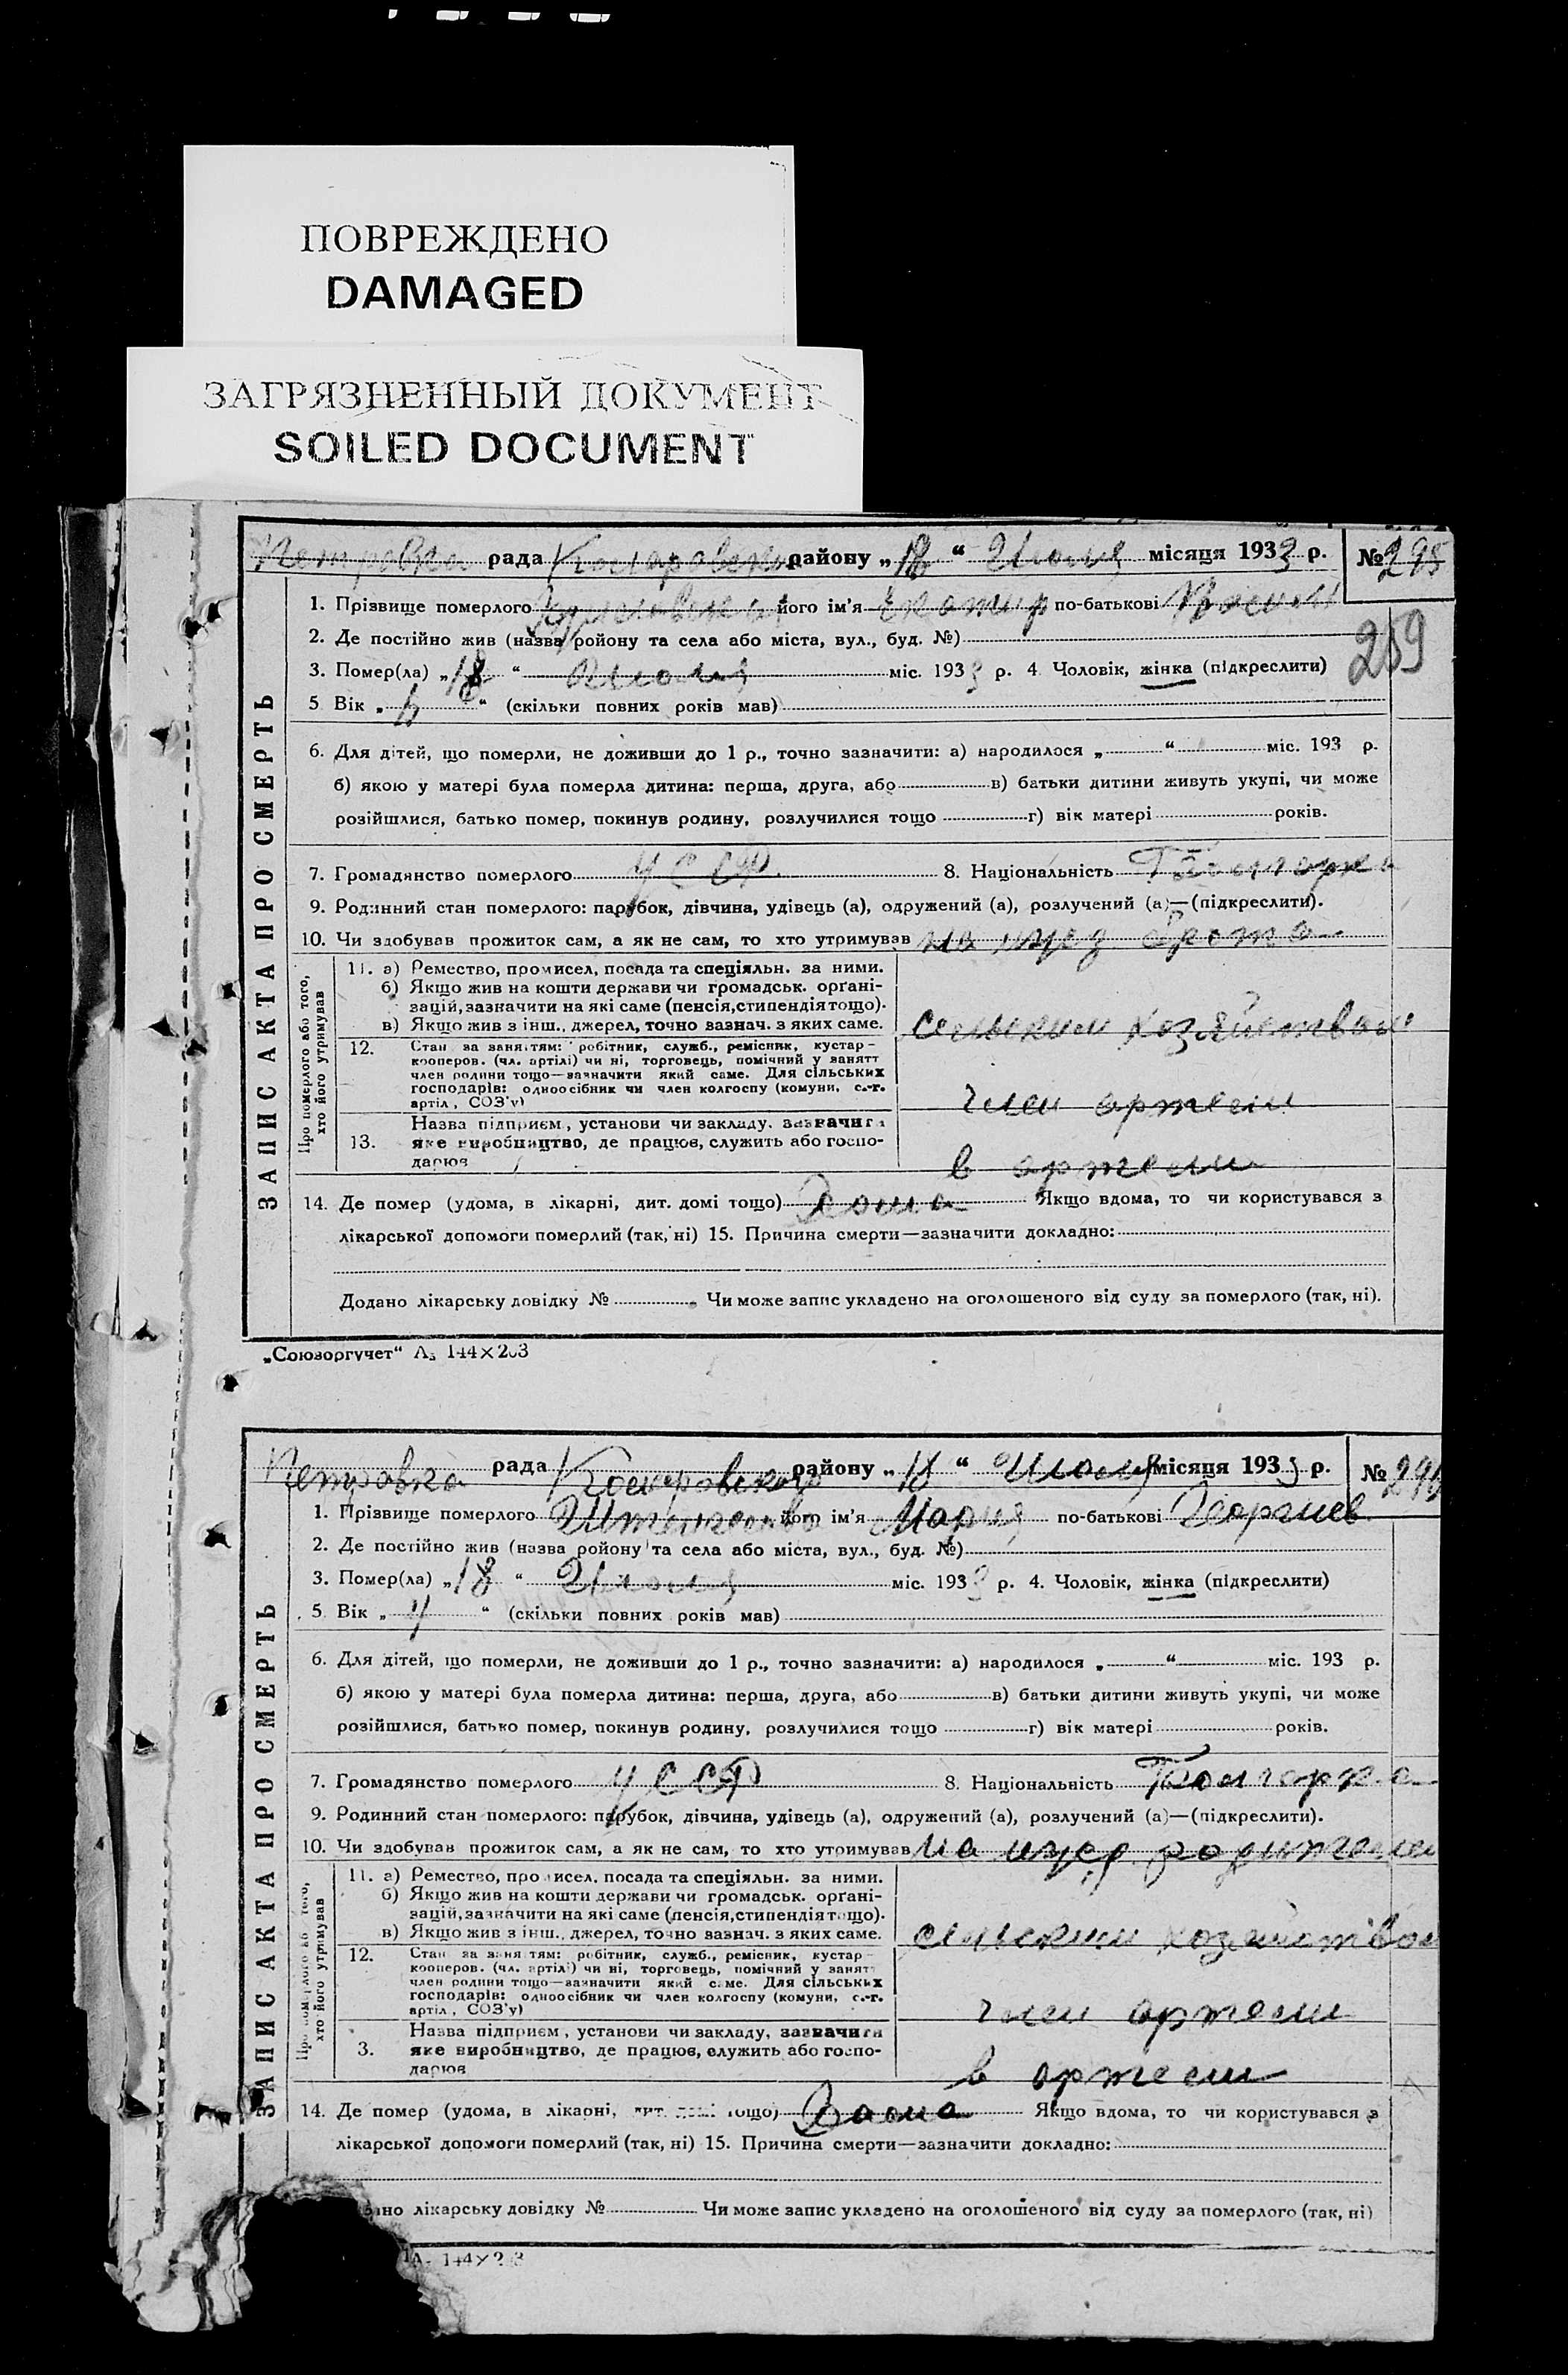 ПОВРЕЖДЕНО
DAMAGED
ЗАГРЯЗНЕННЫЙ ДОКУМЕНТ
SOILED DOCUMENT
Петровка рада району „18“ Июля місяця 1933 р. № 295
1. Прізвище померлого його ім'я по-батькові
259
2. Де постійно жив (назва ройону та села або міста, вул., буд. №)
3. Помер(ла) „18“ июля міс. 1933 р. 4 Чоловік, жінка (підкреслити)
5 Вік „ “ (скільки повних років мав)
6. Для дітей, що померли, не доживши до 1 р., точно зазначити: а) народилося „ “ міс. 193 р.
б) якою у матері була померла дитина: перша, друга, або в) батьки дитини живуть укупі, чи може
розійшлися, батько помер, покинув родину, розлучилися тощо г) вік матері років.
7. Громадянство померлого УССР. 8. Національність Болгарка
9. Родинний стан померлого: парубок, дівчина, удівець (а), одружений (а), розлучений (а)—(підкреслити).
10. Чи здобував прожиток сам, а як не сам, то хто утримував на ижд брата
ЗАПИС АКТА ПРО СМЕРТЬ
Про померлого або того, хто його утримував
11. а) Ремество, промисел, посада та спеціяльн. за ними.
б) Якщо жив на кошти держави чи громадськ. орґані-
зацій, зазначити на які саме (пенсія, стипендія тощо).
в) Якщо жив з інш. джерел, точно вазнач. з яких саме. сельским хозяйством
12. Стан за заняттям: робітник, служб., ремісник, кустар-
кооперов. (чл. артілі) чи ні, торговець, помічний у занятт
член родини тощо—зазначити який саме. Для сільських
господарів: одноосібник чи член колгоспу (комуни, с.-г.
артіл, СОЗ'у) член артели
13. Назва підприєм., установи чи закладу, зазначити
яке виробництво, де працює, служить або госпо-
дарює в артели
14. Де помер (удома, в лікарні, дит. домі тощо) Дома Якщо вдома, то чи користувався з
лікарської допомоги померлий (так, ні) 15. Причина смерти—зазначити докладно:
Додано лікарську довідку № Чи може запис укладено на оголошеного від суду за померлого (так, ні).
„Союзоргучет“ А5 144×203
Петровка рада району „18“ Июля місяця 1933 р. №
1. Прізвище померлого його ім'я Мария по-батькові Георгиев
2. Де постійно жив (назва ройону та села або міста, вул., буд. №)
3. Помер(ла) „18“ Июля міс. 1933 р. 4. Чоловік, жінка (підкреслити)
5 Вік „ “ (скільки повних років мав)
6. Для дітей, що померли, не доживши до 1 р., точно зазначити: а) народилося „ “ міс. 193 р.
б) якою у матері була померла дитина: перша, друга, або в) батьки дитини живуть укупі, чи може
розійшлися, батько помер, покинув родину, розлучилися тощо г) вік матері років.
7. Громадянство померлого УССР 8. Національність Болгарка
9. Родинний стан померлого: парубок, дівчина, удівець (а), одружений (а), розлучений (а)—(підкреслити).
10. Чи здобував прожиток сам, а як не сам, то хто утримував на ижд родителей
ЗАПИС АКТА ПРО СМЕРТЬ
хто його утримував
11. а) Ремество, промисел, посада та спеціяльн. за ними.
б) Якщо жив на кошти держави чи громадськ. орґані-
зацій, зазначити на які саме (пенсія, стипендія тощо).
в) Якщо жив з інш. джерел, точно вазнач. з яких саме. сельским хозяйством
12. Стан за заняттям: робітник, служб., ремісник, кустар-
кооперов. (чл. артілі) чи ні, торговець, помічний у занятт
член родини тощо—зазначити який саме. Для сільських
господарів: одноосібник чи член колгоспу (комуни, с.-г.
артіл, СОЗ'у) член артели
3. Назва підприєм., установи чи закладу, зазначити
яке виробництво, де працює, служить або госпо-
дарює в артели
14. Де помер (удома, в лікарні, дит. домі тощо) Дома Якщо вдома, то чи користувався з
лікарської допомоги померлий (так, ні) 15. Причина смерти—зазначити докладно:
лікарську довідку № Чи може запис укладено на оголошеного від суду за померлого (так, ні)
144×203